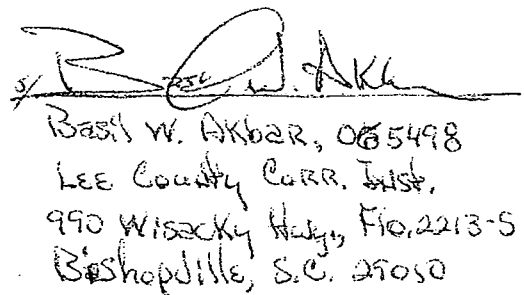 s/ B W. Akb
Basil W. Akbar, 065498
LEE County Corr. Inst.
990 Wisacky Hwy., Flo. 2213-S
Bishopville, S.C. 29010